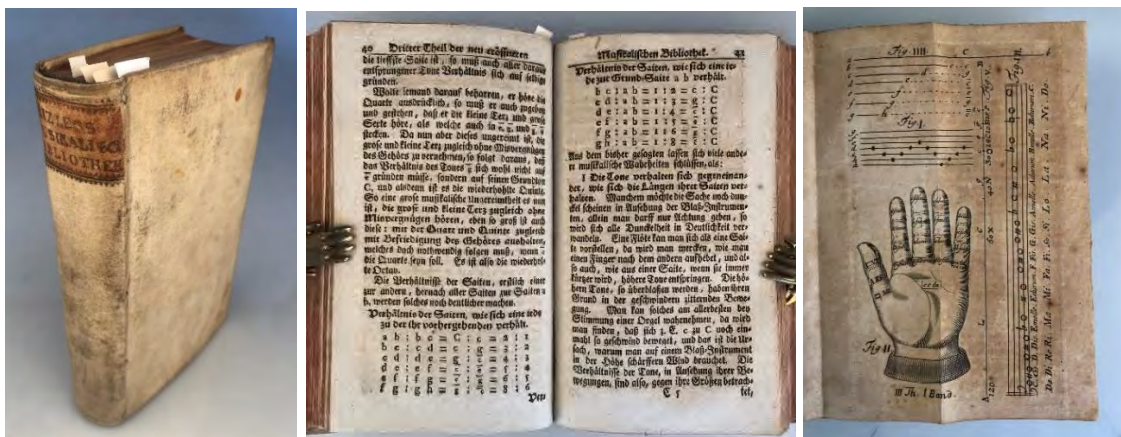 MIZLERS
MUSIKALISCHE
BIBLIOTHEK
40 Dritter Theil der neu eröffneten
die tieffste Saite ist, so muß auch aller daraus
entsprungener Tone Verhältnis sich auf selbige
gründen.
Wolte jemand darauf beharren, er höre die
Quarte ausdrücklich, so muß er auch zugeben
und gestehen, daß er die kleine Terz und große
Sexte höre, als welche auch in
stecken. Da nun aber dieses ungereimt ist, die
große und kleine Terz zugleich ohne Misvergnügen
des Gehörs zu vernehmen, so folgt daraus, daß
das Verhältnis des Tones sich wohl nicht auf
gründen müsse, sondern auf seinen Grundton
C, und alsdenn ist es die wiederhohlte Quinte.
So eine große musikalische Ungereimtheit es nun
ist, die große und kleine Terz zugleich ohne
Misvergnügen hören, eben so groß ist auch
diese: mit der Quart und Quinte zugleich
mit Befriedigung des Gehöres aushalten,
welches doch nothwendig folgen muß, wenn
die Quarte seyn soll. Es ist also die wiederhol-
te Octav.
Die Verhältnisse der Saiten, erstlich einer
zur andern, hernach aller Saiten zur Saiten a
b, werden solches noch deutlicher machen.
Verhältnis der Saiten, wie sich eine jede
zu der ihr vorhergehenden verhält.
a b : b c = C : c = 2 : 1
b c : c d = c : g = 3 : 2
c d : d e = g : c = 4 : 3
d e : e f = c : e = 5 : 4
e f : f g = e : g = 6 : 5
f g : g h = g : c = 8 : 6
Ver-
Musikalischen Bibliothek. 41
Verhältnis der Saiten, wie sich eine je-
de zur Grund-Saite a b verhält.
b c : a b = 1 : 2 = c : C
c d : a b = 1 : 3 = g : C
d e : a b = 1 : 4 = c : C
e f : a b = 1 : 5 = e : C
f g : a b = 1 : 6 = g : C
g h : a b = 1 : 8 = c : C
Aus dem bisher gesagten lassen sich viele ande-
re musikalische Wahrheiten schlüssen, als:
I Die Tone verhalten sich gegeneinan-
der, wie sich die Längen ihrer Saiten ver-
halten. Manchem möchte die Sache noch dun-
kel scheinen in Ansehung der Blaß-Instrumen-
ten, allein man darff nur Achtung geben, so
wird sich alle Dunckelheit in Deutlichkeit ver-
wandeln. Eine Flöte kan man sich als eine Sai-
te vorstellen, da wird man mercken, wie man
einen Finger nach dem andern aufhebet, und al-
so auch, wie aus einer Saite, wenn sie immer
kürtzer wird, höhere Tone entspringen. Die hö-
hern Tone, so überblasen werden, haben ihren
Grund in der geschwindern zitternden Bewe-
gung. Man kan solches am allerbesten bey
Stimmung einer Orgel wahrnehmen, da wird
man finden, daß sich z. E. c zu C noch ein-
mahl so geschwind beweget, und das ist die Ur-
sach, warum man auf einem Blaß-Instrument
in der Höhe schärffern Wind brauchet. Die
Verhältnisse der Tone, in Ansehung ihrer Be-
wegungen, sind also, gegen ihre Größen betrach-
C 5 tet,
Fig. IIII
Fig. I.
Fig. V.
Fig. VI.
Fig. II
III Th. I Band.